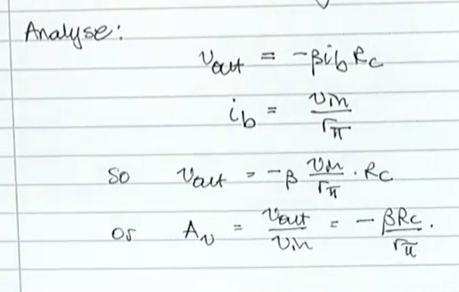 Analyse:
v_out = -βi_b R_c
i_b = v_in / r_π
so v_out = -β v_in / r_π · R_c
or A_v = v_out / v_in = - βR_c / r_π.